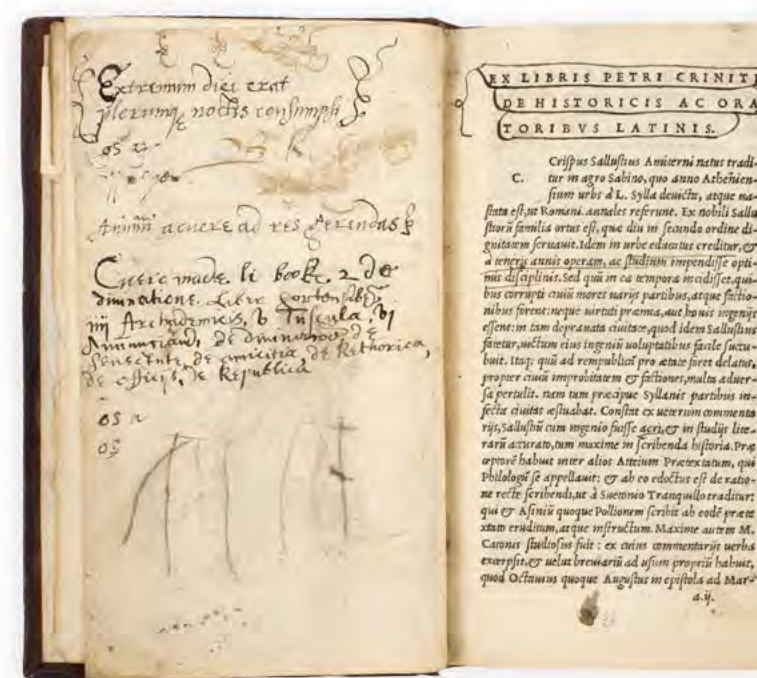 Extremum diei erat
plerumq noctis consumpsi
os
Animū acuere ad res gerendas
Cicero made. li booke. 2 de
divinatione. Liber
iiij v Tuscula, vi
de
Senectute, de amicitia, de Rethorica,
de officijs, de Republica
os
os
EX LIBRIS PETRI CRINITI
DE HISTORICIS AC ORA
TORIBVS LATINIS.
C. Criſpus Salluſtius Amiterni natus tradi-
tur in agro Sabino, quo anno Athenien-
ſium urbs à L. Sylla deuicta, atque ua-
ſtata eſt, ut Romani annales referunt. Ex nobili Sallu
ſtiorū familia ortus eſt, quæ diu in ſecundo ordine di-
gnitatem ſeruauit. Idem in urbe educatus creditur, &
à teneris annis operam, ac ſtudium impendiſſe opti-
mis diſciplinis. Sed quū in ea tempora incidiſſet, qui-
bus corrupti ciuiū mores uarijs partibus, atque factio-
nibus forent: neque uirtuti præmia, aut bonis ingenijs
eſſent: in tam deprauata ciuitate, quod idem Salluſtius
fatetur, uictum eius ingeniū uoluptatibus facile ſuccu-
buit. Itaq; quū ad rempublicā pro ætate foret delatus,
propter ciuiū improbitatem & factiones, multa aduer-
ſa pertulit. nam tum præcipue Syllanis partibus in-
fecta ciuitas æſtuabat. Conſtat ex ueterum commenta
rijs, Salluſtiū cum ingenio fuiſſe acri, & in ſtudijs lite-
rarū accurato, tum maxime in ſcribenda hiſtoria. Præ
ceptorē habuit inter alios Atteium Prætextatum, qui
Philologū ſe appellauit: & ab eo edoctus eſt de ratio-
ne recte ſcribendi, ut à Suetonio Tranquillo traditur:
qui & Aſiniū quoque Pollionem ſcribit ab eodē præte
xtato eruditum, atque inſtructum. Maxime autem M.
Catonis ſtudioſus fuit: ex cuius commentarijs uerba
excerpſit, & uelut breuiariū ad uſum propriū habuit,
quod Octauius quoque Auguſtus in epiſtola ad Mar-
a.ij.